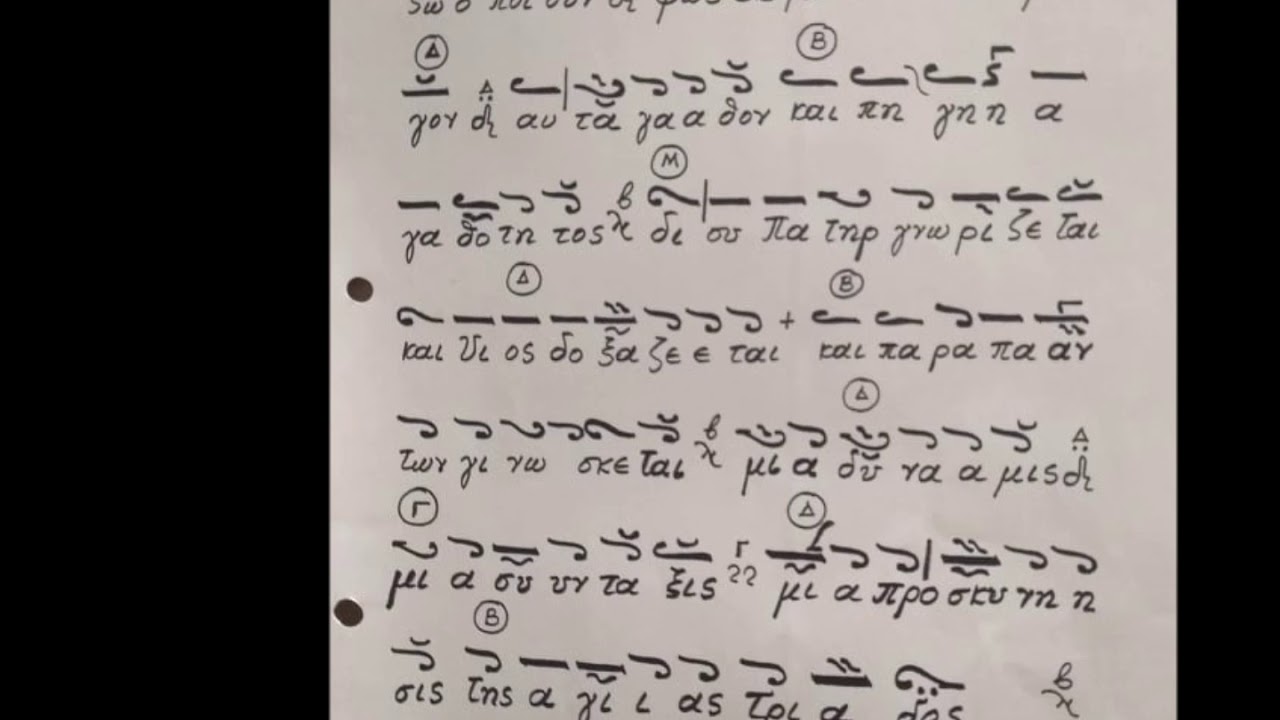 Δ Β
γον δι αυ τα γα α θον και πη γη η α
Μ
γα θο τη τος δι ου Πα τηρ γνω ρι ζε ται
Δ Β
και Υι ος δο ξα ζε ε ται + και πα ρα πα αν
Δ
των γι νω σκε ται μι α δυ να α μις δι
Γ Δ
μι α συ υν τα ξις μι α προ σκυ νη η
Β
σις της α γι ι ας τρι α δος